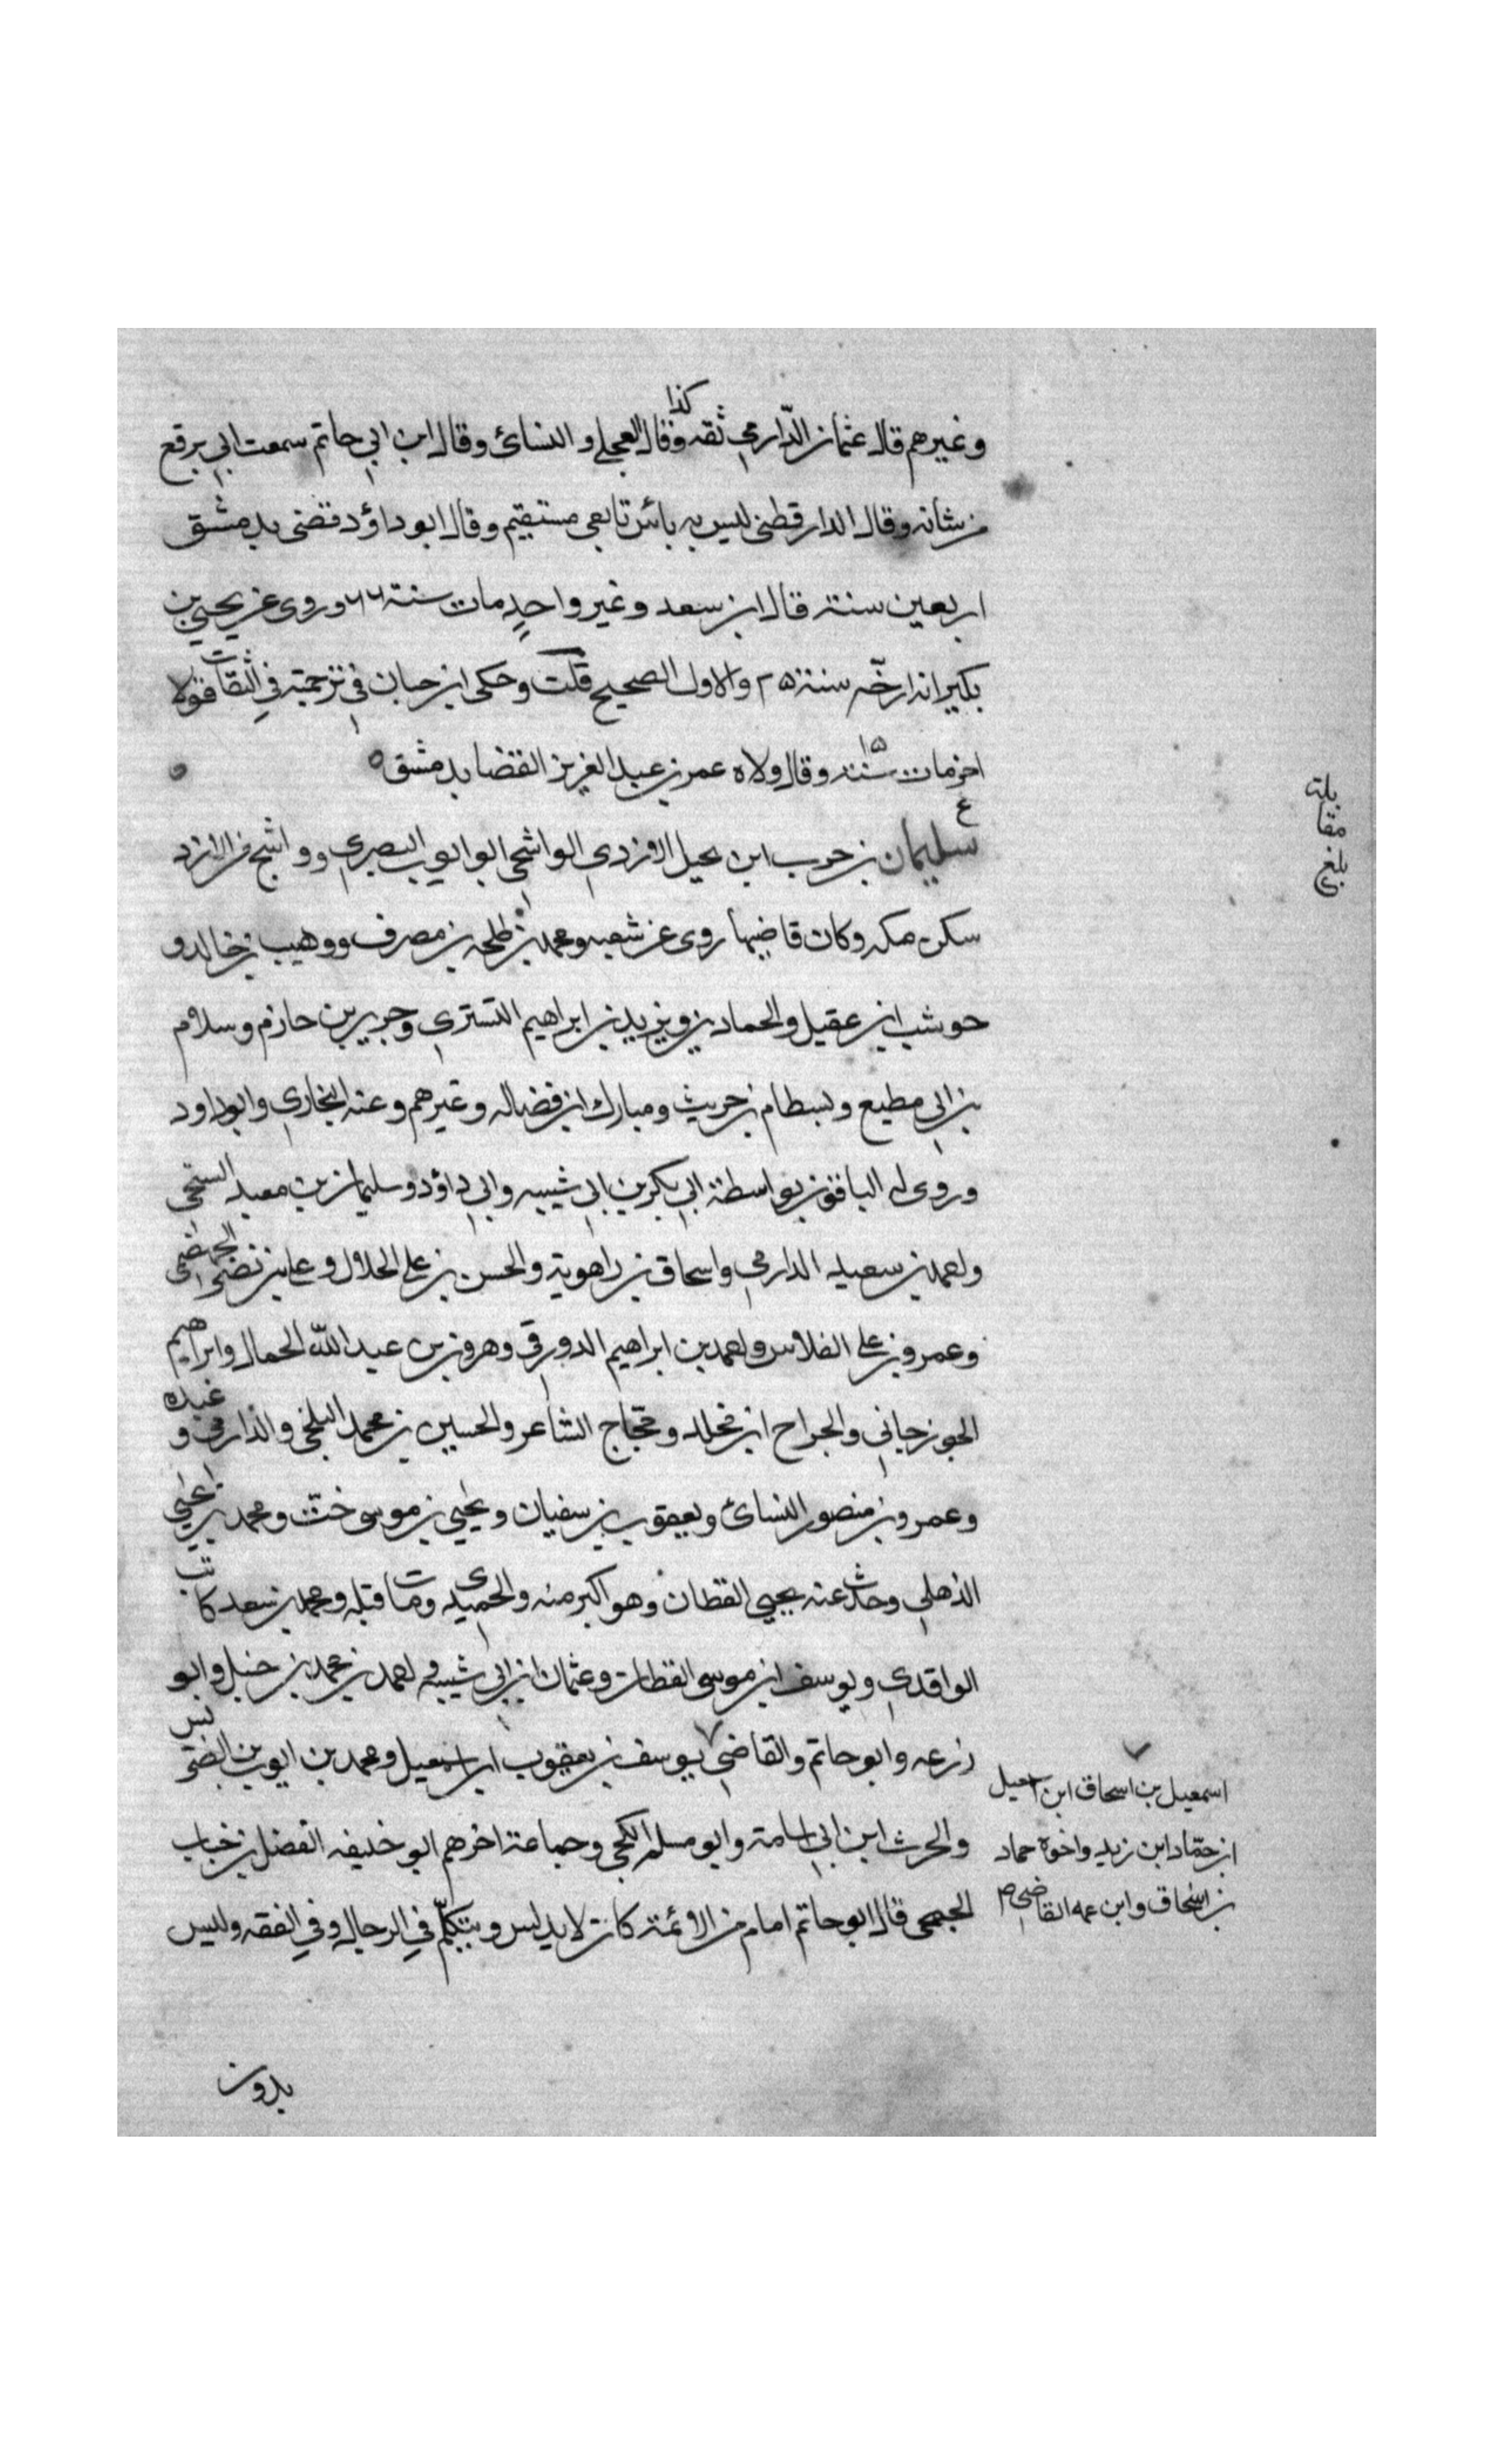 وغيرهم قال عثمان الدّارمي ثقه وكذا قال العجلي والنسائ وقال ابن ابي حاتم سمعت ابي يرفع
من شانه وقال الدارقطني ليس به بائس تابعي مستقيم وقال ابو داؤد قضى بدمشق
اربعين سنة قال ابن سعد وغير واحدٍ مات سنة وروى عن يحيى بن
بكير انه ارخّه سنة والاول الصحيح قلت وحكى ابن حبان في ترجمته في الثقات قولا
اخر مات سنة ١٥ وقال ولاه عمر بن عبد العزيز القضا بدمشق ه
ع
سليمان بن حرب ابن بجيل الازدي الواشحي ابو ايوب البصري وواشح من الازد
سكن مكه وكان قاضيها روى عن شعبه ومحمد بن طلحه بن مصرف ووهيب بن خالد و
حوشب ابن عقيل والحمادين ويزيد بن ابراهيم التستري وجرير بن حازم وسلام
بن ابي مطيع وبسطام بن حريث ومبارك ابن فضاله وغيرهم وعنه البخاري وابو داود
وروى له الباقون بواسطة ابي بكر بن ابي شيبه وابي داؤد وسليمان بن معبد السنجي
واحمد بن سعيد الدارمي واسحاق بن راهوية والحسن بن علي الحلال وعلي بن نصر الجهضمي
وعمرو بن علي الفلاس واحمد بن ابراهيم الدورقي وهرون بن عبد اللّه الحمال وابراهيم
الجوزجاني والجراح ابن مخلد وحجاج الشاعر والحسين بن محمد البلخي والدارمي و
وعمرو بن منصور النسائ ويعقوب بن سفيان ويحيى بن موسى ختّ ومحمد بن يحيى
الذهلي وحدث عنه يحيى القطان وهو اكبر منه والحميدي ومات قبله ومحمد بن سعد كاتب
الواقدي ويوسف ابن موسى القطان وعثمان ابن ابي شيبه واحمد بن محمد بن حنبل وابو
زرعه وابو حاتم والقاضي يوسف بن يعقوب ابن اسمعيل ومحمد بن ايوب بن الضريس
والحرث ابن ابي اسامة وابو مسلم الكجي وجماعة اخرهم ابو خليفه الفضل بن حباب
الجمحي قال ابو حاتم امام من الائمة كان لا يدلس ويتكلّم في الرجال وفي الفقه وليس
بدون
بلغ
مقا
بلة
اسمعيل بن اسحاق ابن اسمعيل
ابن حمّاد ابن زيد واخوه حماد
بن اسحاق وابن عمه القاضي